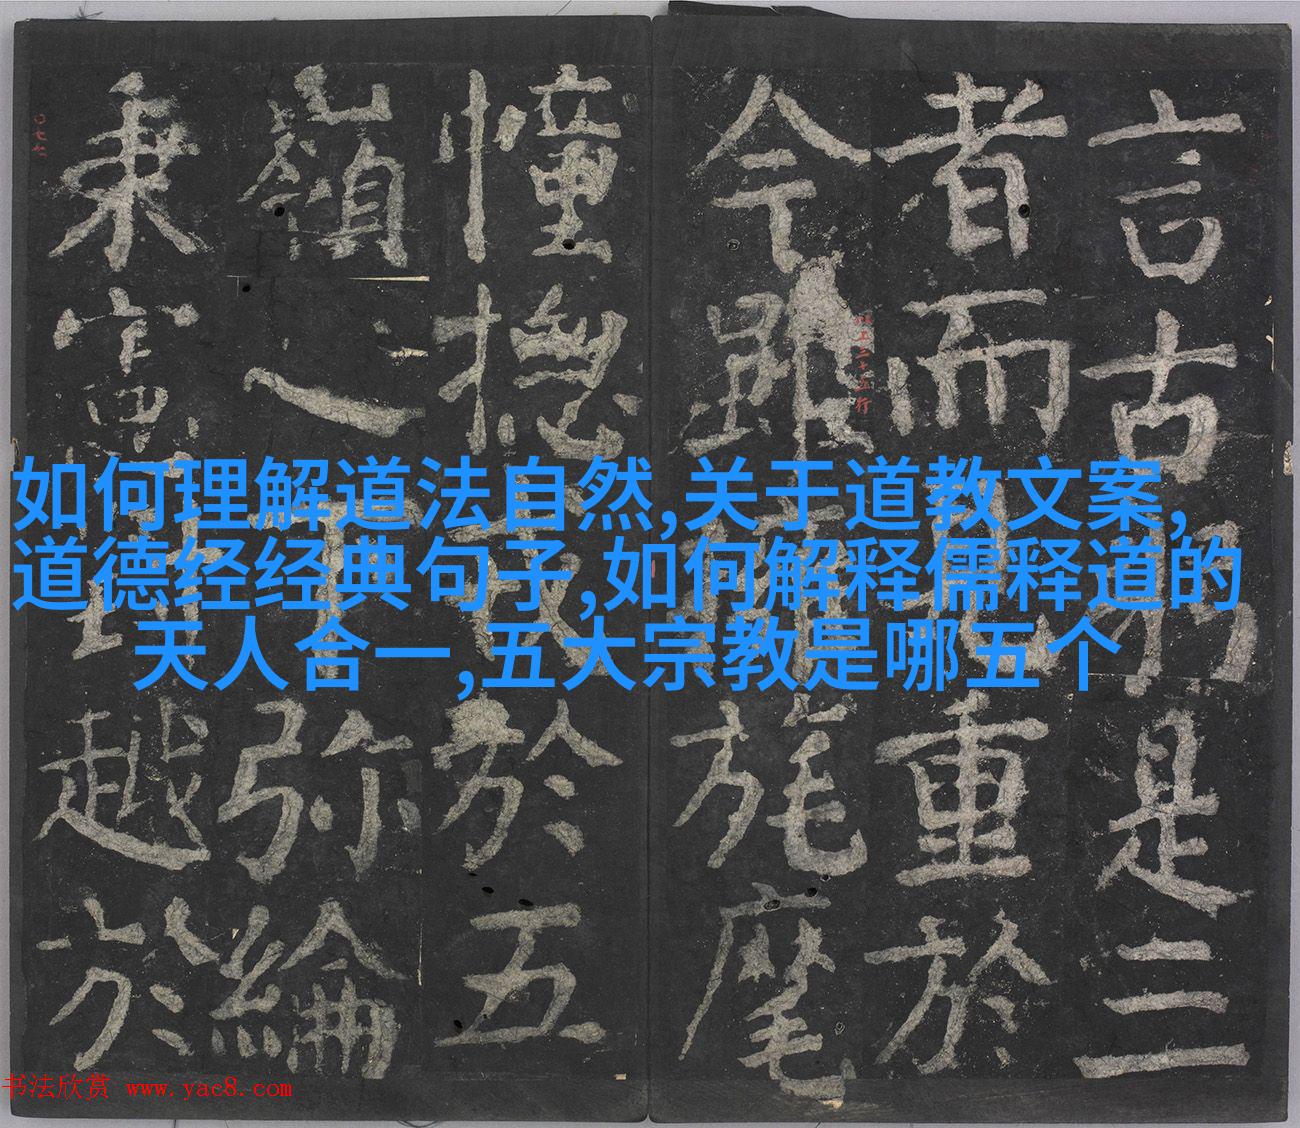 言古□是三
者而□重於
今雖□旄麾
憧揔戎於五
嶺之□弥綸
秉憲□越於
以上二十五行
如何理解道法自然,关于道教文案,
道德经经典句子,如何解释儒释道的
天人合一,五大宗教是哪五个
书法欣赏 www.yac8.com